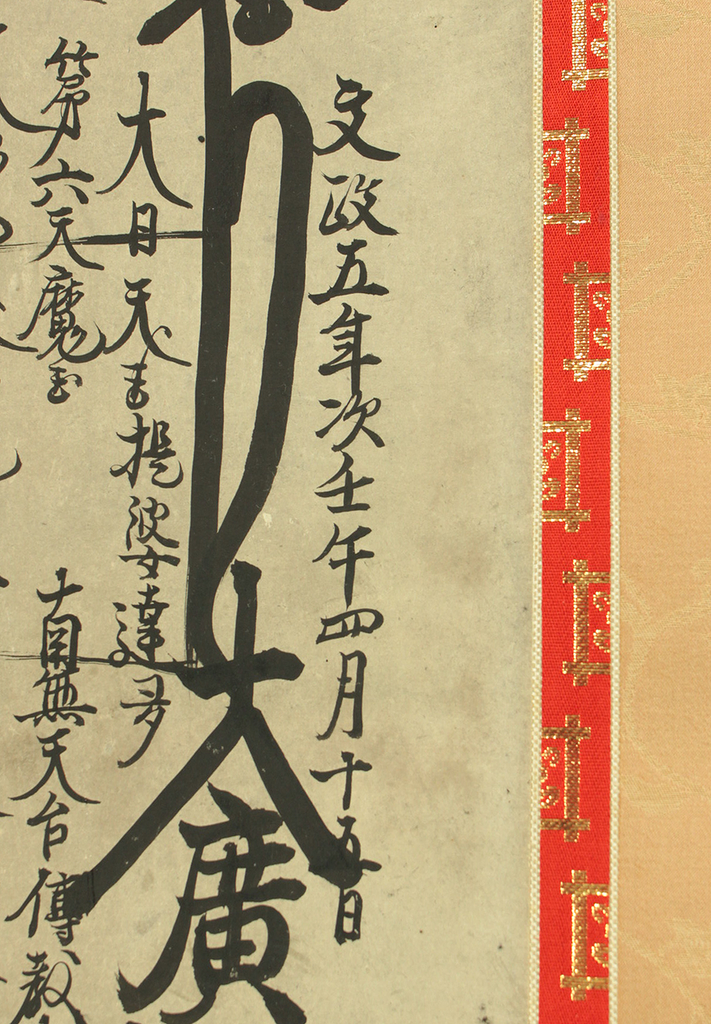 文政五年次壬午四月十五日
大廣
大日天王提婆達多
第六天魔王
南無天台傳教